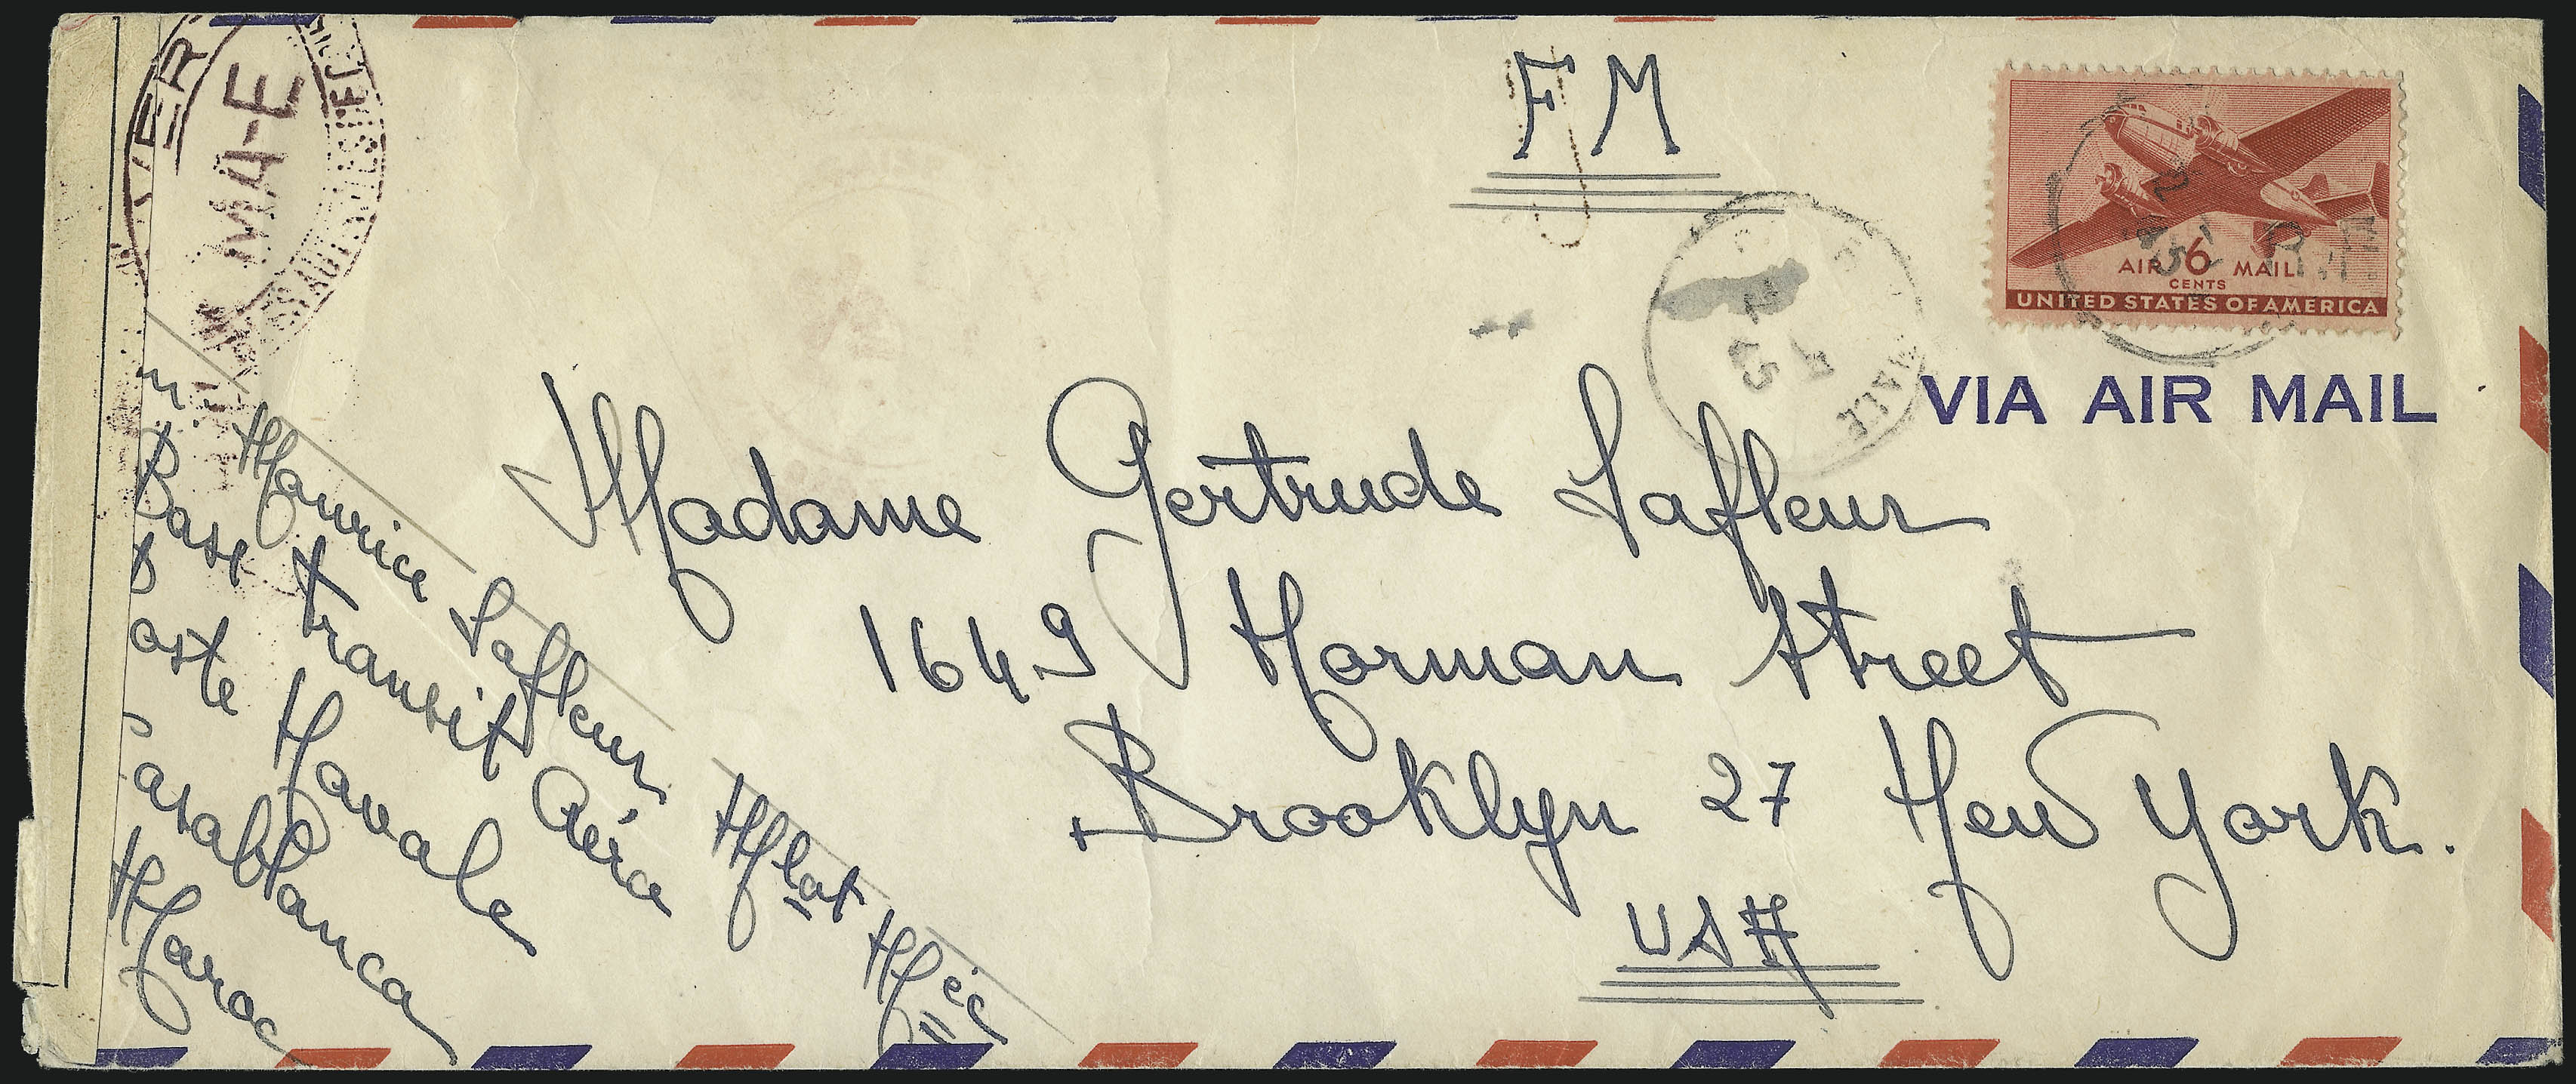 OUVERT
MA-E
F M
AIR 6 MAIL
CENTS
UNITED STATES OF AMERICA
VIA AIR MAIL
Madame Gertrude Lafleur
1649 Norman Street
Brooklyn 27 New York.
USA
Maurice Lafleur Mlot Méc
Base transit Aéra
Poste Navale
Casablanca
Maroc